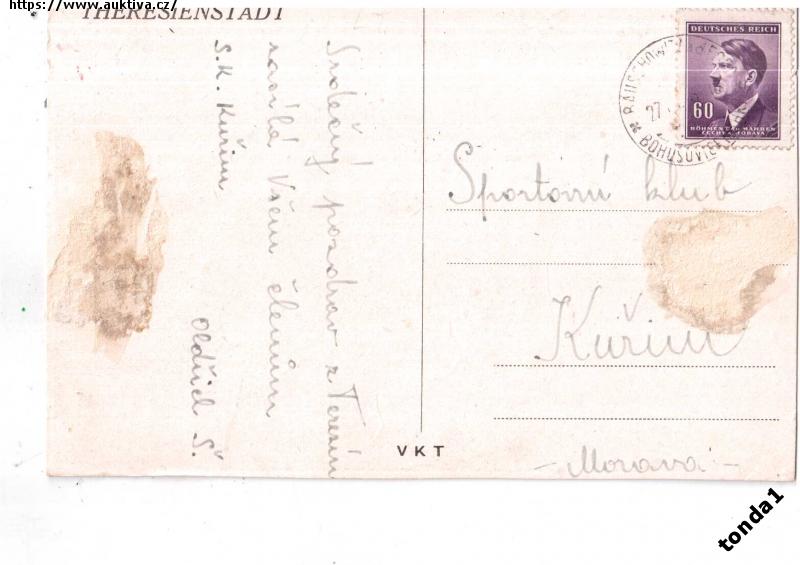 https://www.auktiva.cz/
THERESIENSTADT
Srdečný pozdrav z Terezín
zasílá Všem členům
S.K. Kuřim
Oldřich Š.
VKT
DEUTSCHES REICH
60
BÖHMEN U. MÄHREN
ČECHY A MORAVA
BAUSCHOWITZ
27
BOHUŠOVICE
Sportovní klub
Kuřim
- Morava -
tonda1